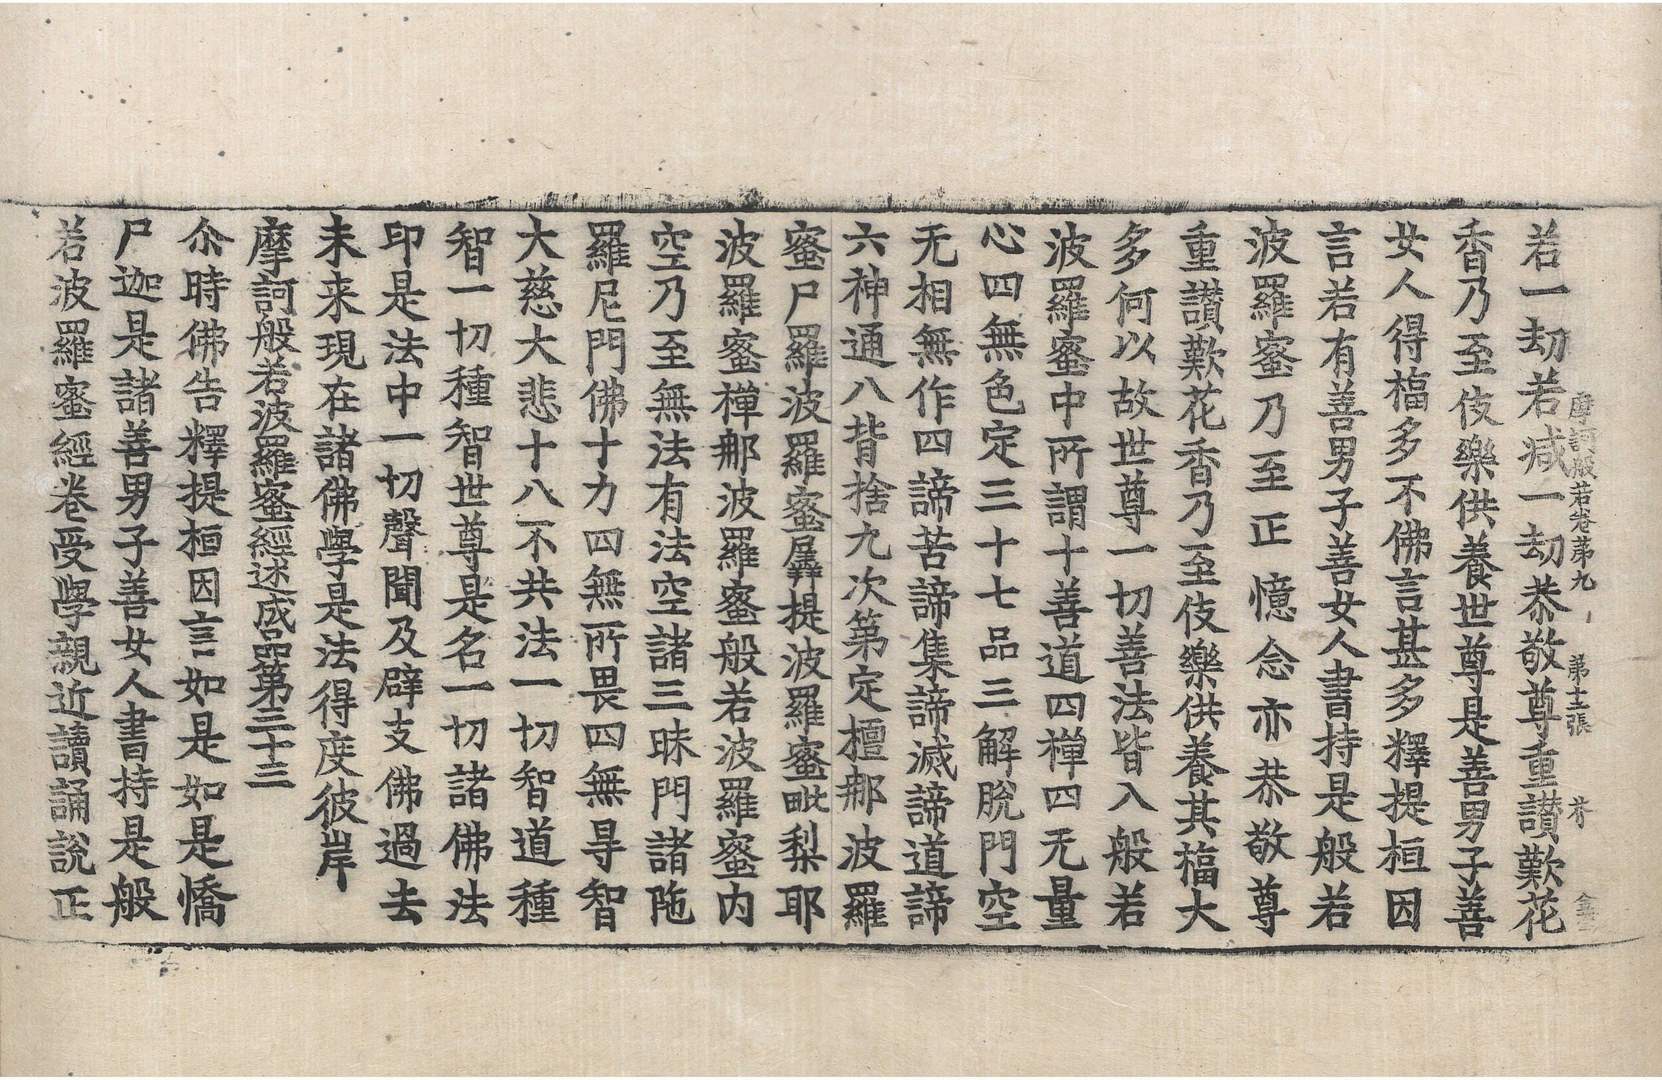 摩訶般若卷第九 第十二張 芥
若一劫若減一劫恭敬尊重讃歎花
香乃至伎樂供養世尊是善男子善
女人得福多不佛言甚多釋提桓因
言若有善男子善女人書持是般若
波羅蜜乃至正憶念亦恭敬尊
重讃歎花香乃至伎樂供養其福大
多何以故世尊一切善法皆入般若
波羅蜜中所謂十善道四禪四无量
心四無色定三十七品三解脫門空
无相無作四諦苦諦集諦滅諦道諦
六神通八背捨九次第定檀那波羅
蜜尸羅波羅蜜羼提波羅蜜毗梨耶
波羅蜜禪那波羅蜜般若波羅蜜內
空乃至無法有法空諸三昧門諸陁
羅尼門佛十力四無所畏四無㝵智
大慈大悲十八不共法一切智道種
智一切種智世尊是名一切諸佛法
印是法中一切聲聞及辟支佛過去
未来現在諸佛學是法得度彼岸
摩訶般若波羅蜜經述成品第三十三
尒時佛告釋提桓因言如是如是憍
尸迦是諸善男子善女人書持是般
若波羅蜜經卷受學親近讀誦說正